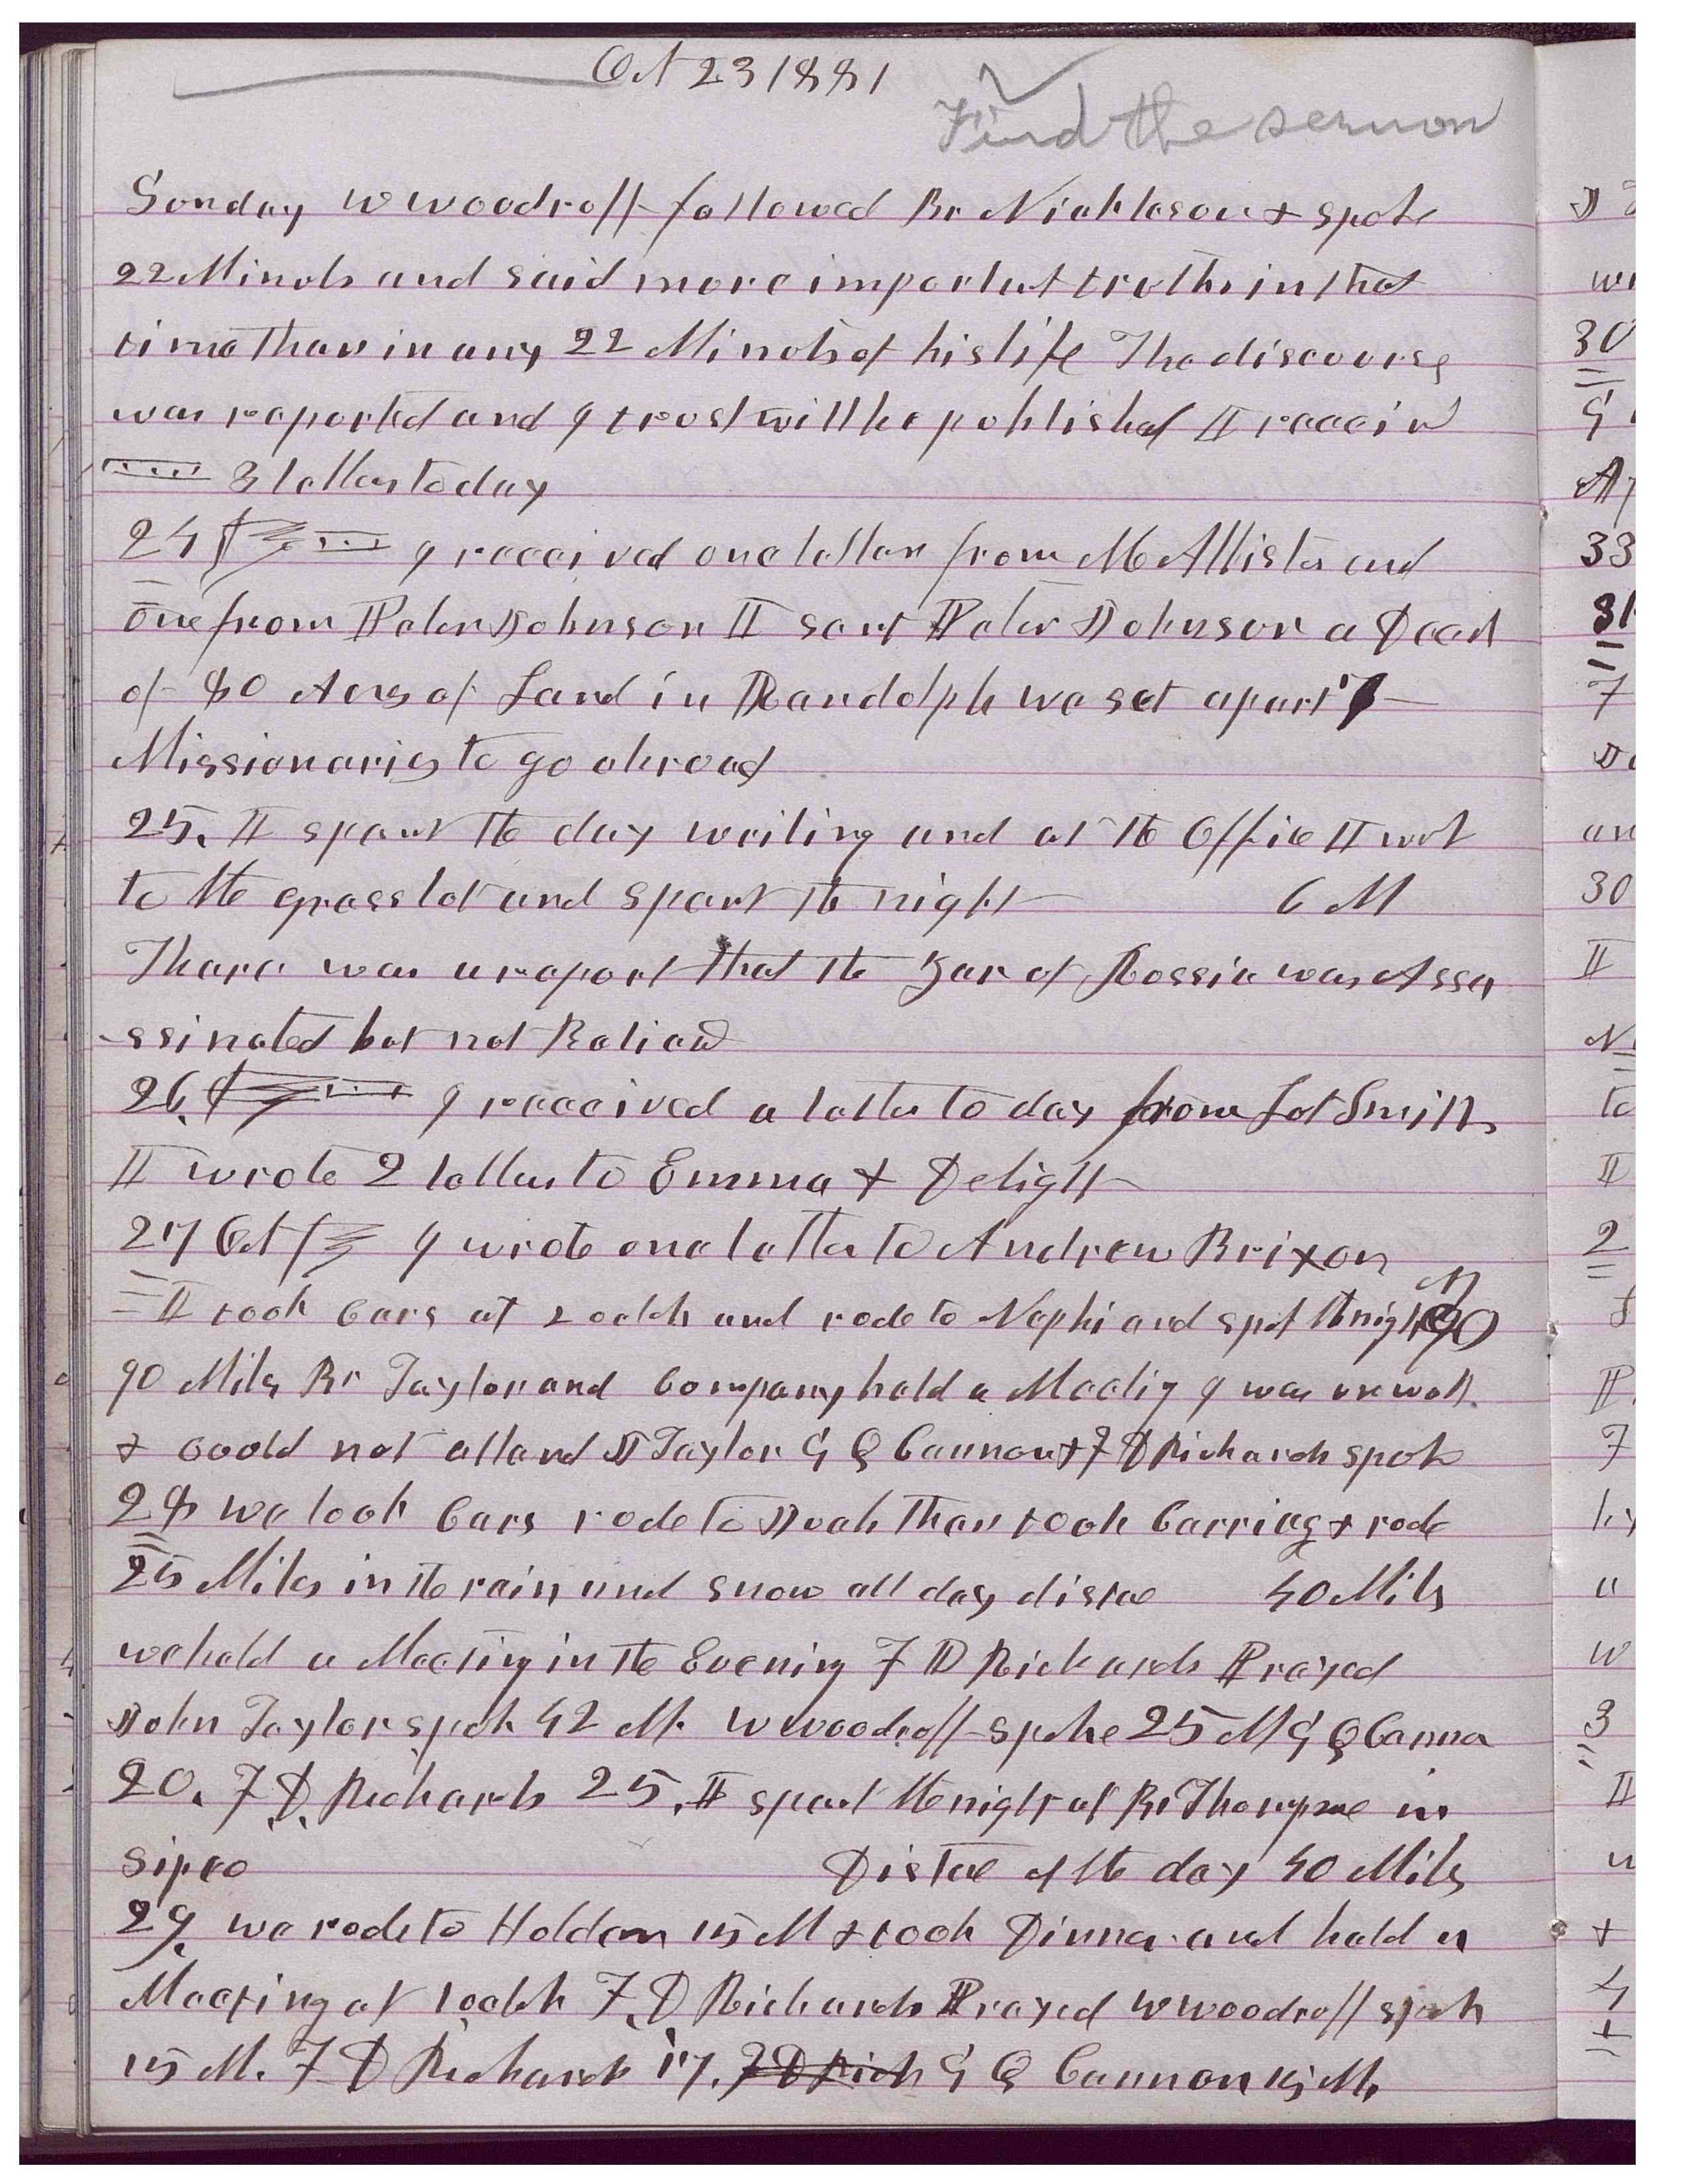 Oct 23 1881
Find the sermon
Sunday W Woodruff followed Br Nichloson & spoke
22 Minuts and said more importut truths in that
time than in any 22 Minuts of his life The discourse
was reported and I trust will be publishd I receivd
3 letters to day
24 I received one letter from McAllister and
one from Peter Johnson I sent Peter Johnson a Deed
of 80 Acres of Land in Randolph we set apart 7
Missionaries to go abroad
25. I spent the day writing and at the Office I wet
to the grass lot and spent the night 6 M
There was a report that the Zar of Russia was Assa
-ssinated but not Believd
26. I received a letter to day from Lot Smith
I wrote 2 letters to Emma & Delight
27 Oct I wrote one letter to Andrew Brixon
I took Cars at 2 oclok and rode to Nephi and spet the night M 90
90 Miles Br Taylor and Company held a Meetig I was unwell
& could not attend J Taylor G Q Cannon & F D Richards spoke
28 we took Cars rode to Juab then took Carriag & rode
25 Miles in the rain and snow all day distce 40 Mils
we held a Meeting in the Evening F D Richards Prayed
John Taylor spok 42 M. W Woodruff spoke 25 M G Q Canna
20. F. D. Richards 25. I spent the night at Br Thompsne in
Sipeo Distce of the day 40 Mils
29. we rode to Holden 15 M & took Dinner and held a
Meeting at 1 oclok F. D Richards Prayed W Woodruff spok
15 M. F D Richards 17. F D Rich G Q Cannon 15 M.